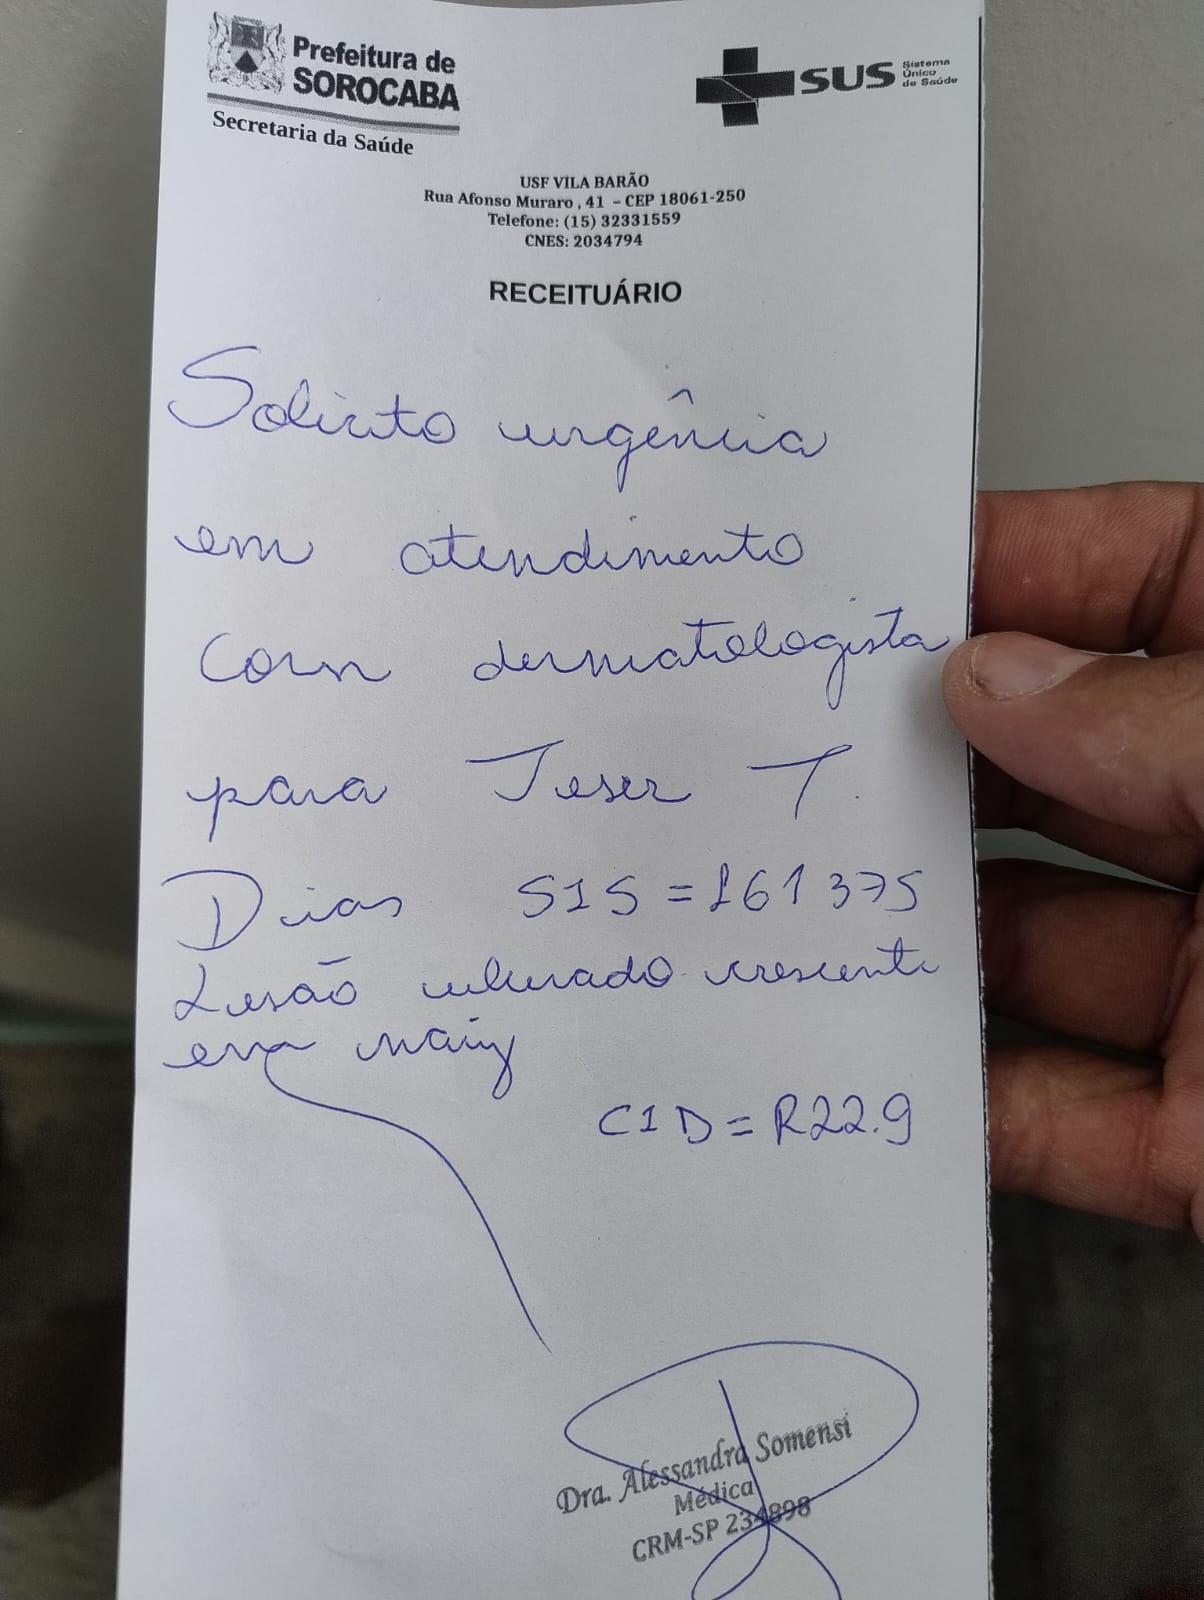 Prefeitura de
SOROCABA
Secretaria da Saúde
SUS
Sistema
Único
de Saúde
USF VILA BARÃO
Rua Afonso Muraro , 41 – CEP 18061-250
Telefone: (15) 32331559
CNES: 2034794
RECEITUÁRIO
Solicito urgência
em atendimento
com dermatologista
para Jeser T.
Dias SIS = 161 375
Lesão ulcerado crescente
em nariz
CID = R22.9
Dra. Alessandra Somensi
Médica
CRM-SP 234898